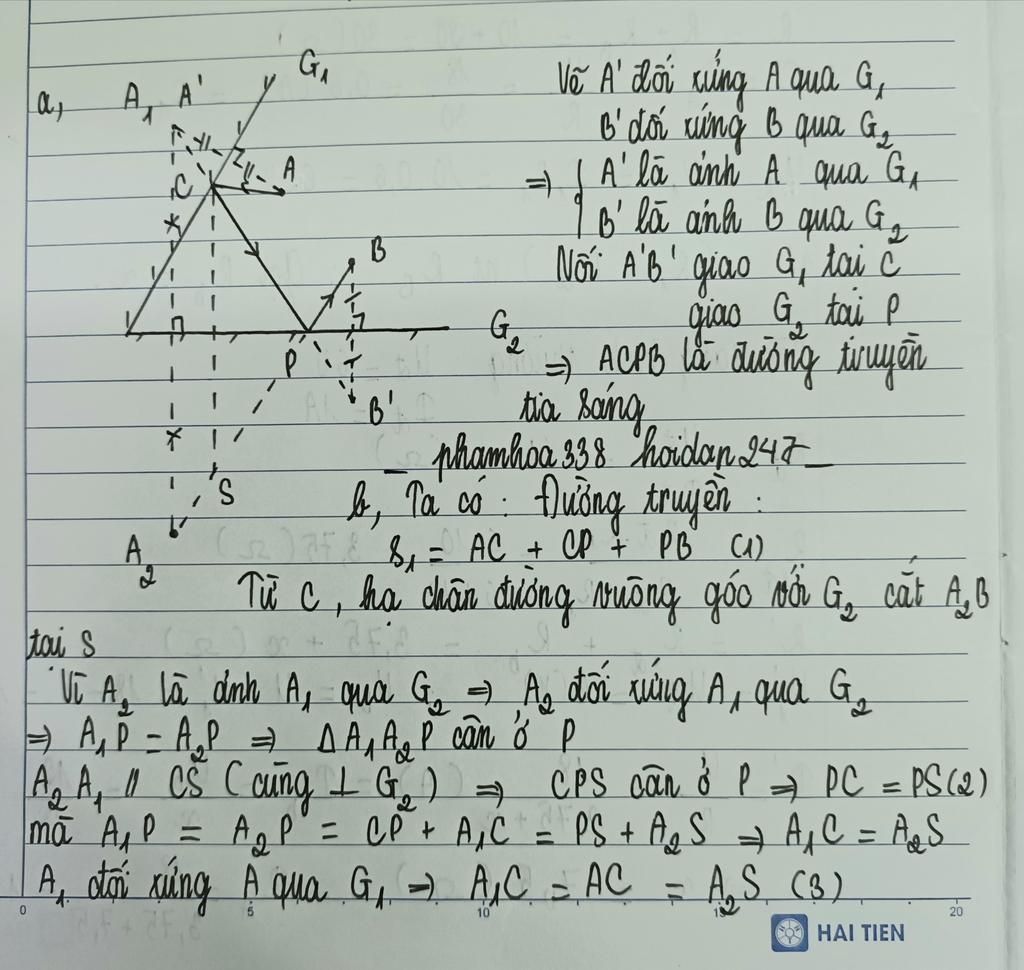 a,
G₁
A₁ A'
A
C
B
G₂
P
B'
S
A₂
Vẽ A' đối xứng A qua G₁
B' đối xứng B qua G₂
=> { A' là ảnh A qua G₁
B' là ảnh B qua G₂
Nối A'B' giao G₁ tại C
giao G₂ tại P
=> ACPB là đường truyền
tia sáng
_ phamhoa338 hoidap247_
b, Ta có : Đường truyền :
S₁ = AC + CP + PB (1)
Từ C, hạ chân đường vuông góc với G₂ cắt A₂B
tại S
Vì A₂ là ảnh A₁ qua G₂ => A₂ đối xứng A₁ qua G₂
=> A₁P = A₂P => ΔA₁A₂P cân ở P
A₂A₁ // CS (cùng ⊥ G₂) => CPS cân ở P => PC = PS(2)
mà A₁P = A₂P = CP + A₁C = PS + A₂S => A₁C = A₂S
A₁ đối xứng A qua G₁ => A₁C = AC = A₂S (3)
0 5 10 20
HAI TIEN